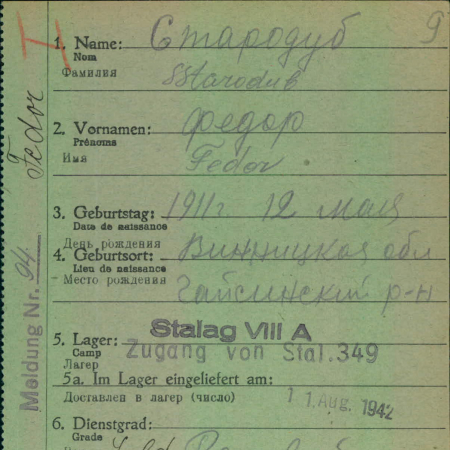 9
1. Name: Стародуб
Nom
Фамилия Sstarodub
2. Vornamen: Федор
Prénoms
Имя Fedor
3. Geburtstag: 1911г 12 мая
Date de naissance
День рождения
4. Geburtsort: Винницкая обл
Lieu de naissance
Место рождения Гайсинский р-н
5. Lager: Stalag VIII A
Camp Zugang von Stal. 349
Лагер
5a. Im Lager eingeliefert am:
Доставлен в лагер (число) 11. Aug. 1942
6. Dienstgrad:
Grade
Fedor
Meldung Nr. 94